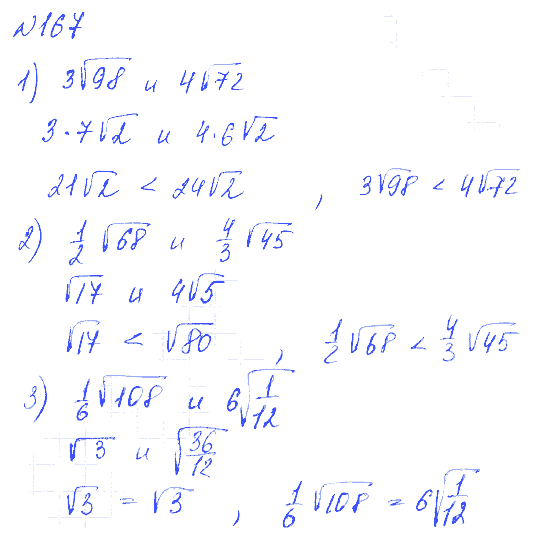 №167
1) 3√98 и 4√72
3·7√2 и 4·6√2
21√2 < 24√2 , 3√98 < 4√72
2) 1/2 √68 и 4/3 √45
√17 и 4√5
√17 < √80 , 1/2 √68 < 4/3 √45
3) 1/6 √108 и 6√(1/12)
√3 и √(36/12)
√3 = √3 , 1/6 √108 = 6√(1/12)